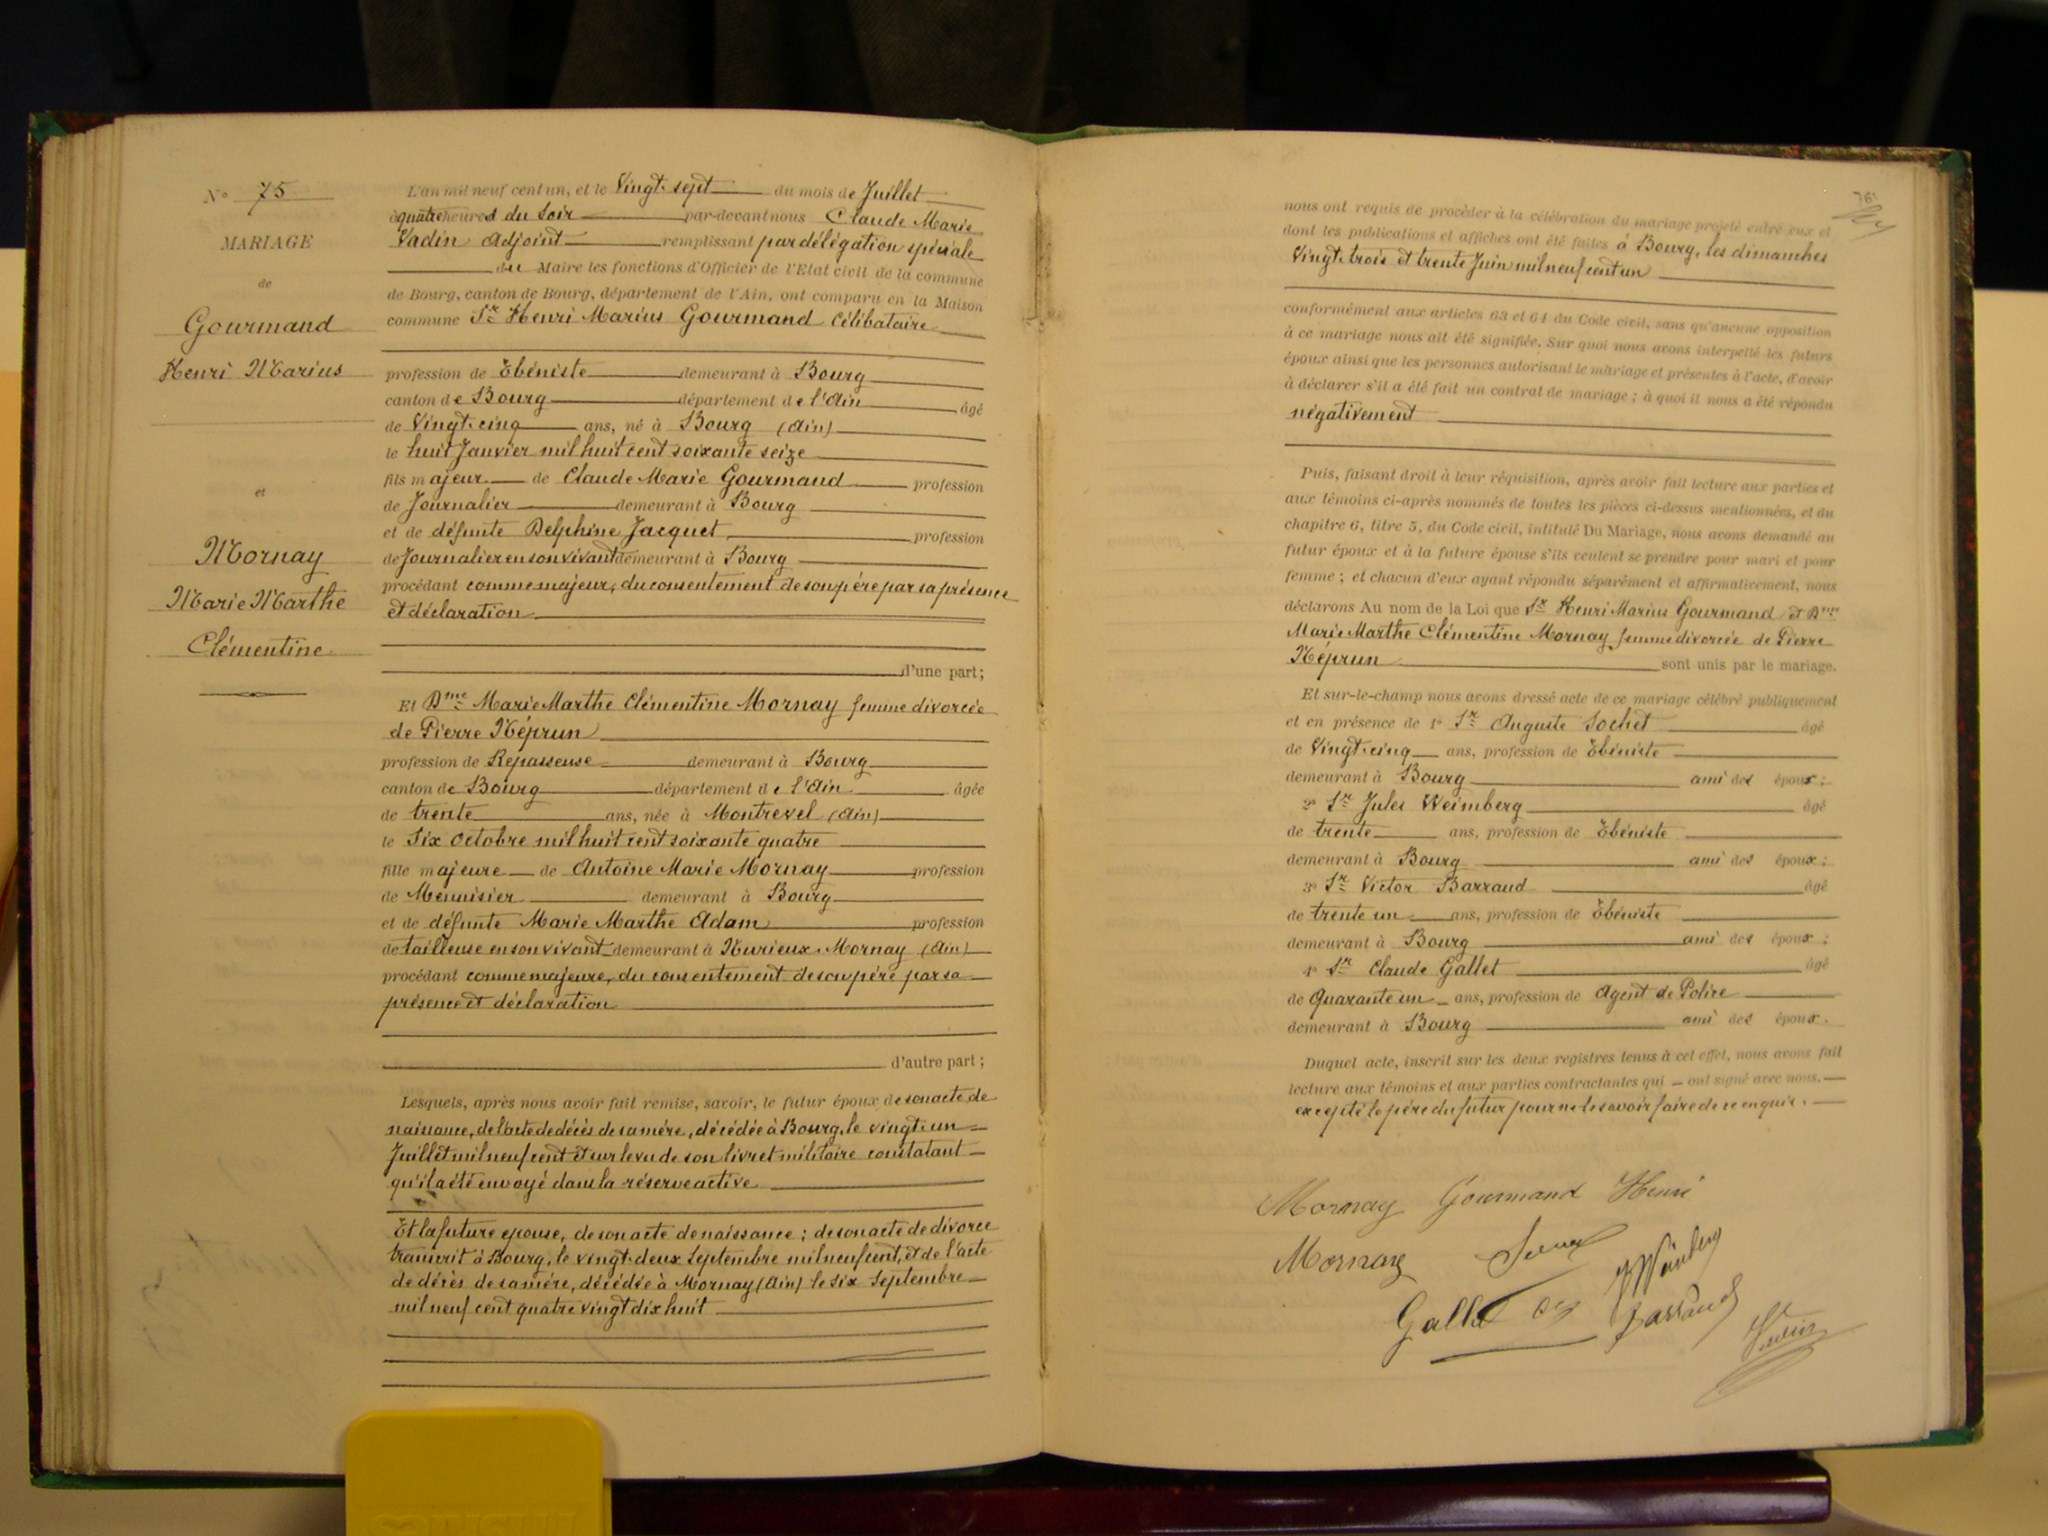 N° 75
MARIAGE
de
Gourmand
Henri Marius
et
Mornay
Marie Marthe
Clémentine
L'an mil neuf cent un, et le Vingt-sept du mois de Juillet
à quatre heures du soir par-devant nous Claude Marie
Vadin Adjoint remplissant par délégation spéciale
du Maire les fonctions d'Officier de l'Etat civil de la commune
de Bourg, canton de Bourg, département de l'Ain, ont comparu en la Maison
commune Sr Henri Marius Gourmand Célibataire
profession de Ebéniste demeurant à Bourg
canton de Bourg département de l'Ain âgé
de Vingt-cinq ans, né à Bourg (Ain)
le huit Janvier mil huit cent soixante seize
fils majeur de Claude Marie Gourmand profession
de Journalier demeurant à Bourg
et de défunte Delphine Jacquet profession
de Journalier en son vivant demeurant à Bourg
procédant comme majeur, du consentement de son père par sa présence
et déclaration
d'une part;
Et Dme Marie Marthe Clémentine Mornay femme divorcée
de Pierre Néprun
profession de Repasseuse demeurant à Bourg
canton de Bourg département de l'Ain âgée
de trente ans, née à Montrevel (Ain)
le Six Octobre mil huit cent soixante quatre
fille majeure de Antoine Marie Mornay profession
de Menuisier demeurant à Bourg
et de défunte Marie Marthe Adam profession
de tailleuse en son vivant demeurant à Nurieux-Mornay (Ain)
procédant comme majeure, du consentement de son père par sa
présence et déclaration
d'autre part;
Lesquels, après nous avoir fait remise, savoir, le futur époux de son acte de
naissance, de l'acte de décès de sa mère, décédée à Bourg, le vingt-un
Juillet mil neuf cent et sur le vu de son livret militaire constatant
qu'il a été envoyé dans la réserve active
Et la future epouse, de son acte de naissance; de son acte de divorce
transcrit à Bourg, le vingt-deux Septembre mil neuf cent, et de l'acte
de décès de sa mère, décédée à Mornay (Ain) le six Septembre
mil neuf cent quatre vingt dix huit
76
nous ont requis de procéder à la célébration du mariage projeté entre eux et
dont les publications et affiches ont été faites à Bourg, les dimanches
Vingt-trois et trente Juin mil neuf cent un
conformément aux articles 63 et 64 du Code civil, sans qu'aucune opposition
à ce mariage nous ait été signifiée. Sur quoi nous avons interpellé les futurs
époux ainsi que les personnes autorisant le mariage et présentes à l'acte, d'avoir
à déclarer s'il a été fait un contrat de mariage; à quoi il nous a été répondu
négativement
Puis, faisant droit à leur réquisition, après avoir fait lecture aux parties et
aux témoins ci-après nommés de toutes les pièces ci-dessus mentionnées, et du
chapitre 6, titre 5, du Code civil, intitulé Du Mariage, nous avons demandé au
futur époux et à la future épouse s'ils veulent se prendre pour mari et pour
femme; et chacun d'eux ayant répondu séparément et affirmativement, nous
déclarons Au nom de la Loi que Sr Henri Marius Gourmand et Dme
Marie Marthe Clémentine Mornay femme divorcée de Pierre
Néprun sont unis par le mariage.
Et sur-le-champ nous avons dressé acte de ce mariage célébré publiquement
et en présence de 1° Sr Auguste Sochet âgé
de Vingt-cinq ans, profession de Ebéniste
demeurant à Bourg ami des époux;
2° Sr Jules Weimberg âgé
de trente ans, profession de Ebéniste
demeurant à Bourg ami des époux;
3° Sr Victor Barraud âgé
de trente un ans, profession de Ebéniste
demeurant à Bourg ami des époux;
4° Sr Claude Gallet âgé
de Quarante un ans, profession de Agent de Police
demeurant à Bourg ami des époux.
Duquel acte, inscrit sur les deux registres tenus à cet effet, nous avons fait
lecture aux témoins et aux parties contractantes qui ont signé avec nous.
excepté le père du futur pour ne le savoir faire de ce enquis.
Mornay Gourmand Henri
Mornay
JWeinberg
Gallet
Barraud
Vadin